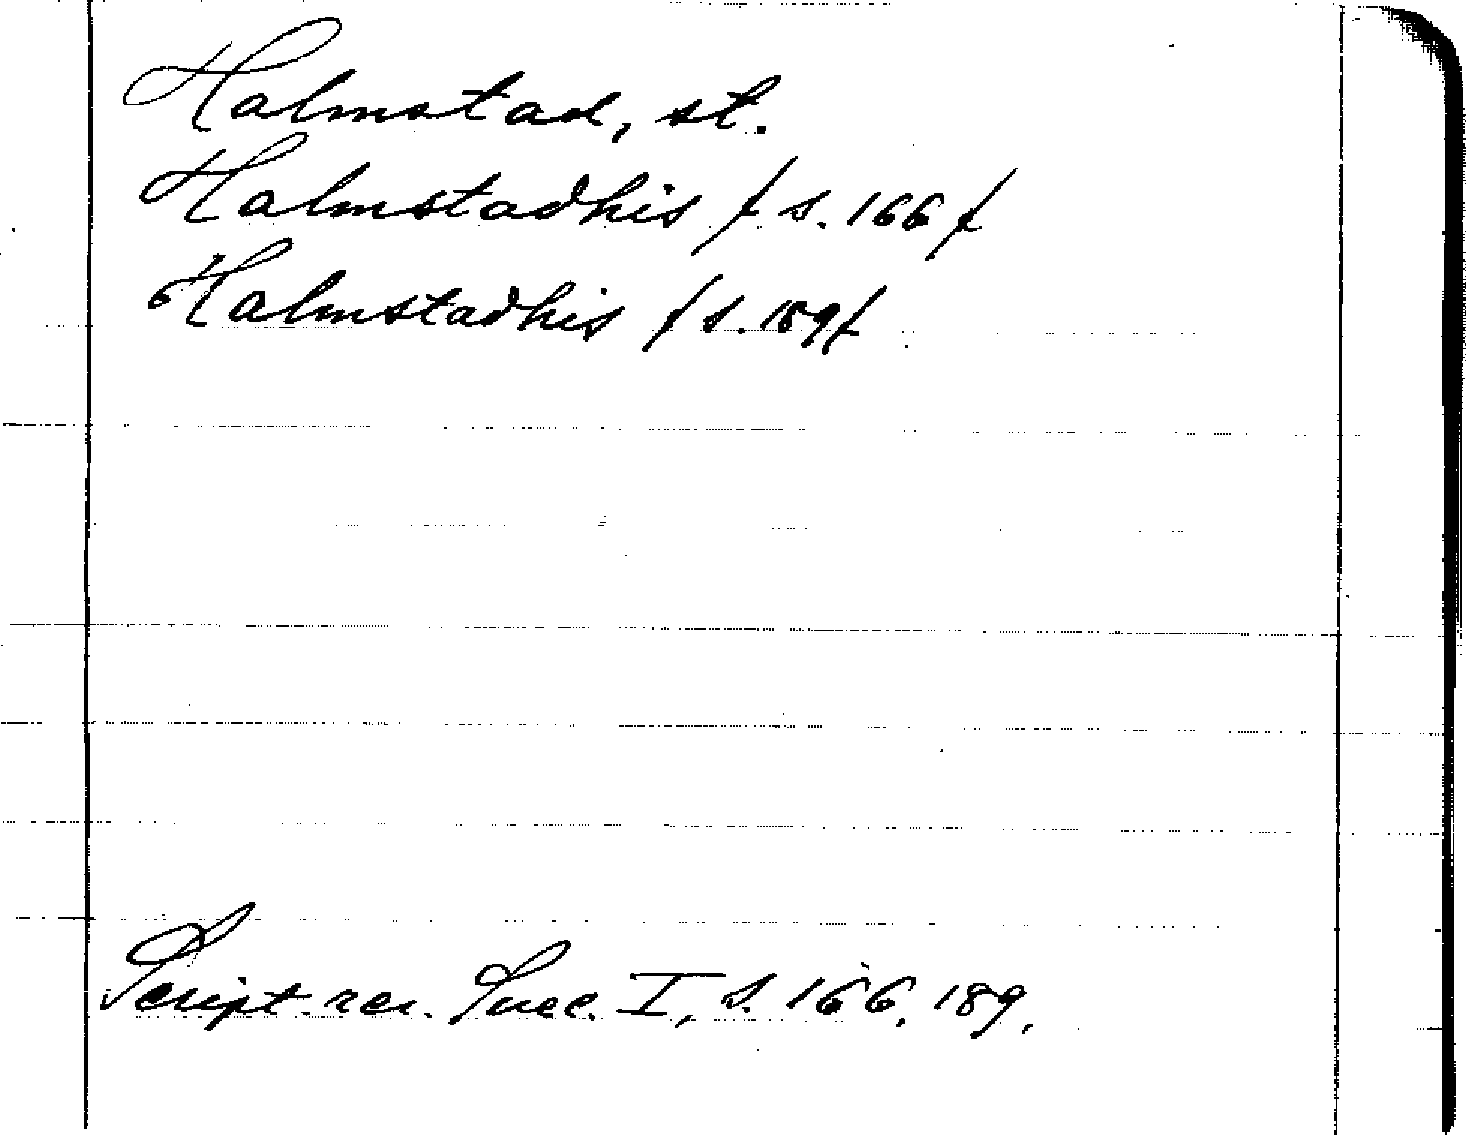 Halmstad, st.
Halmstadhis / s. 166 /
Halmstadhis / s. 189 /
Script. rer. Suec. I, s. 166, 189.